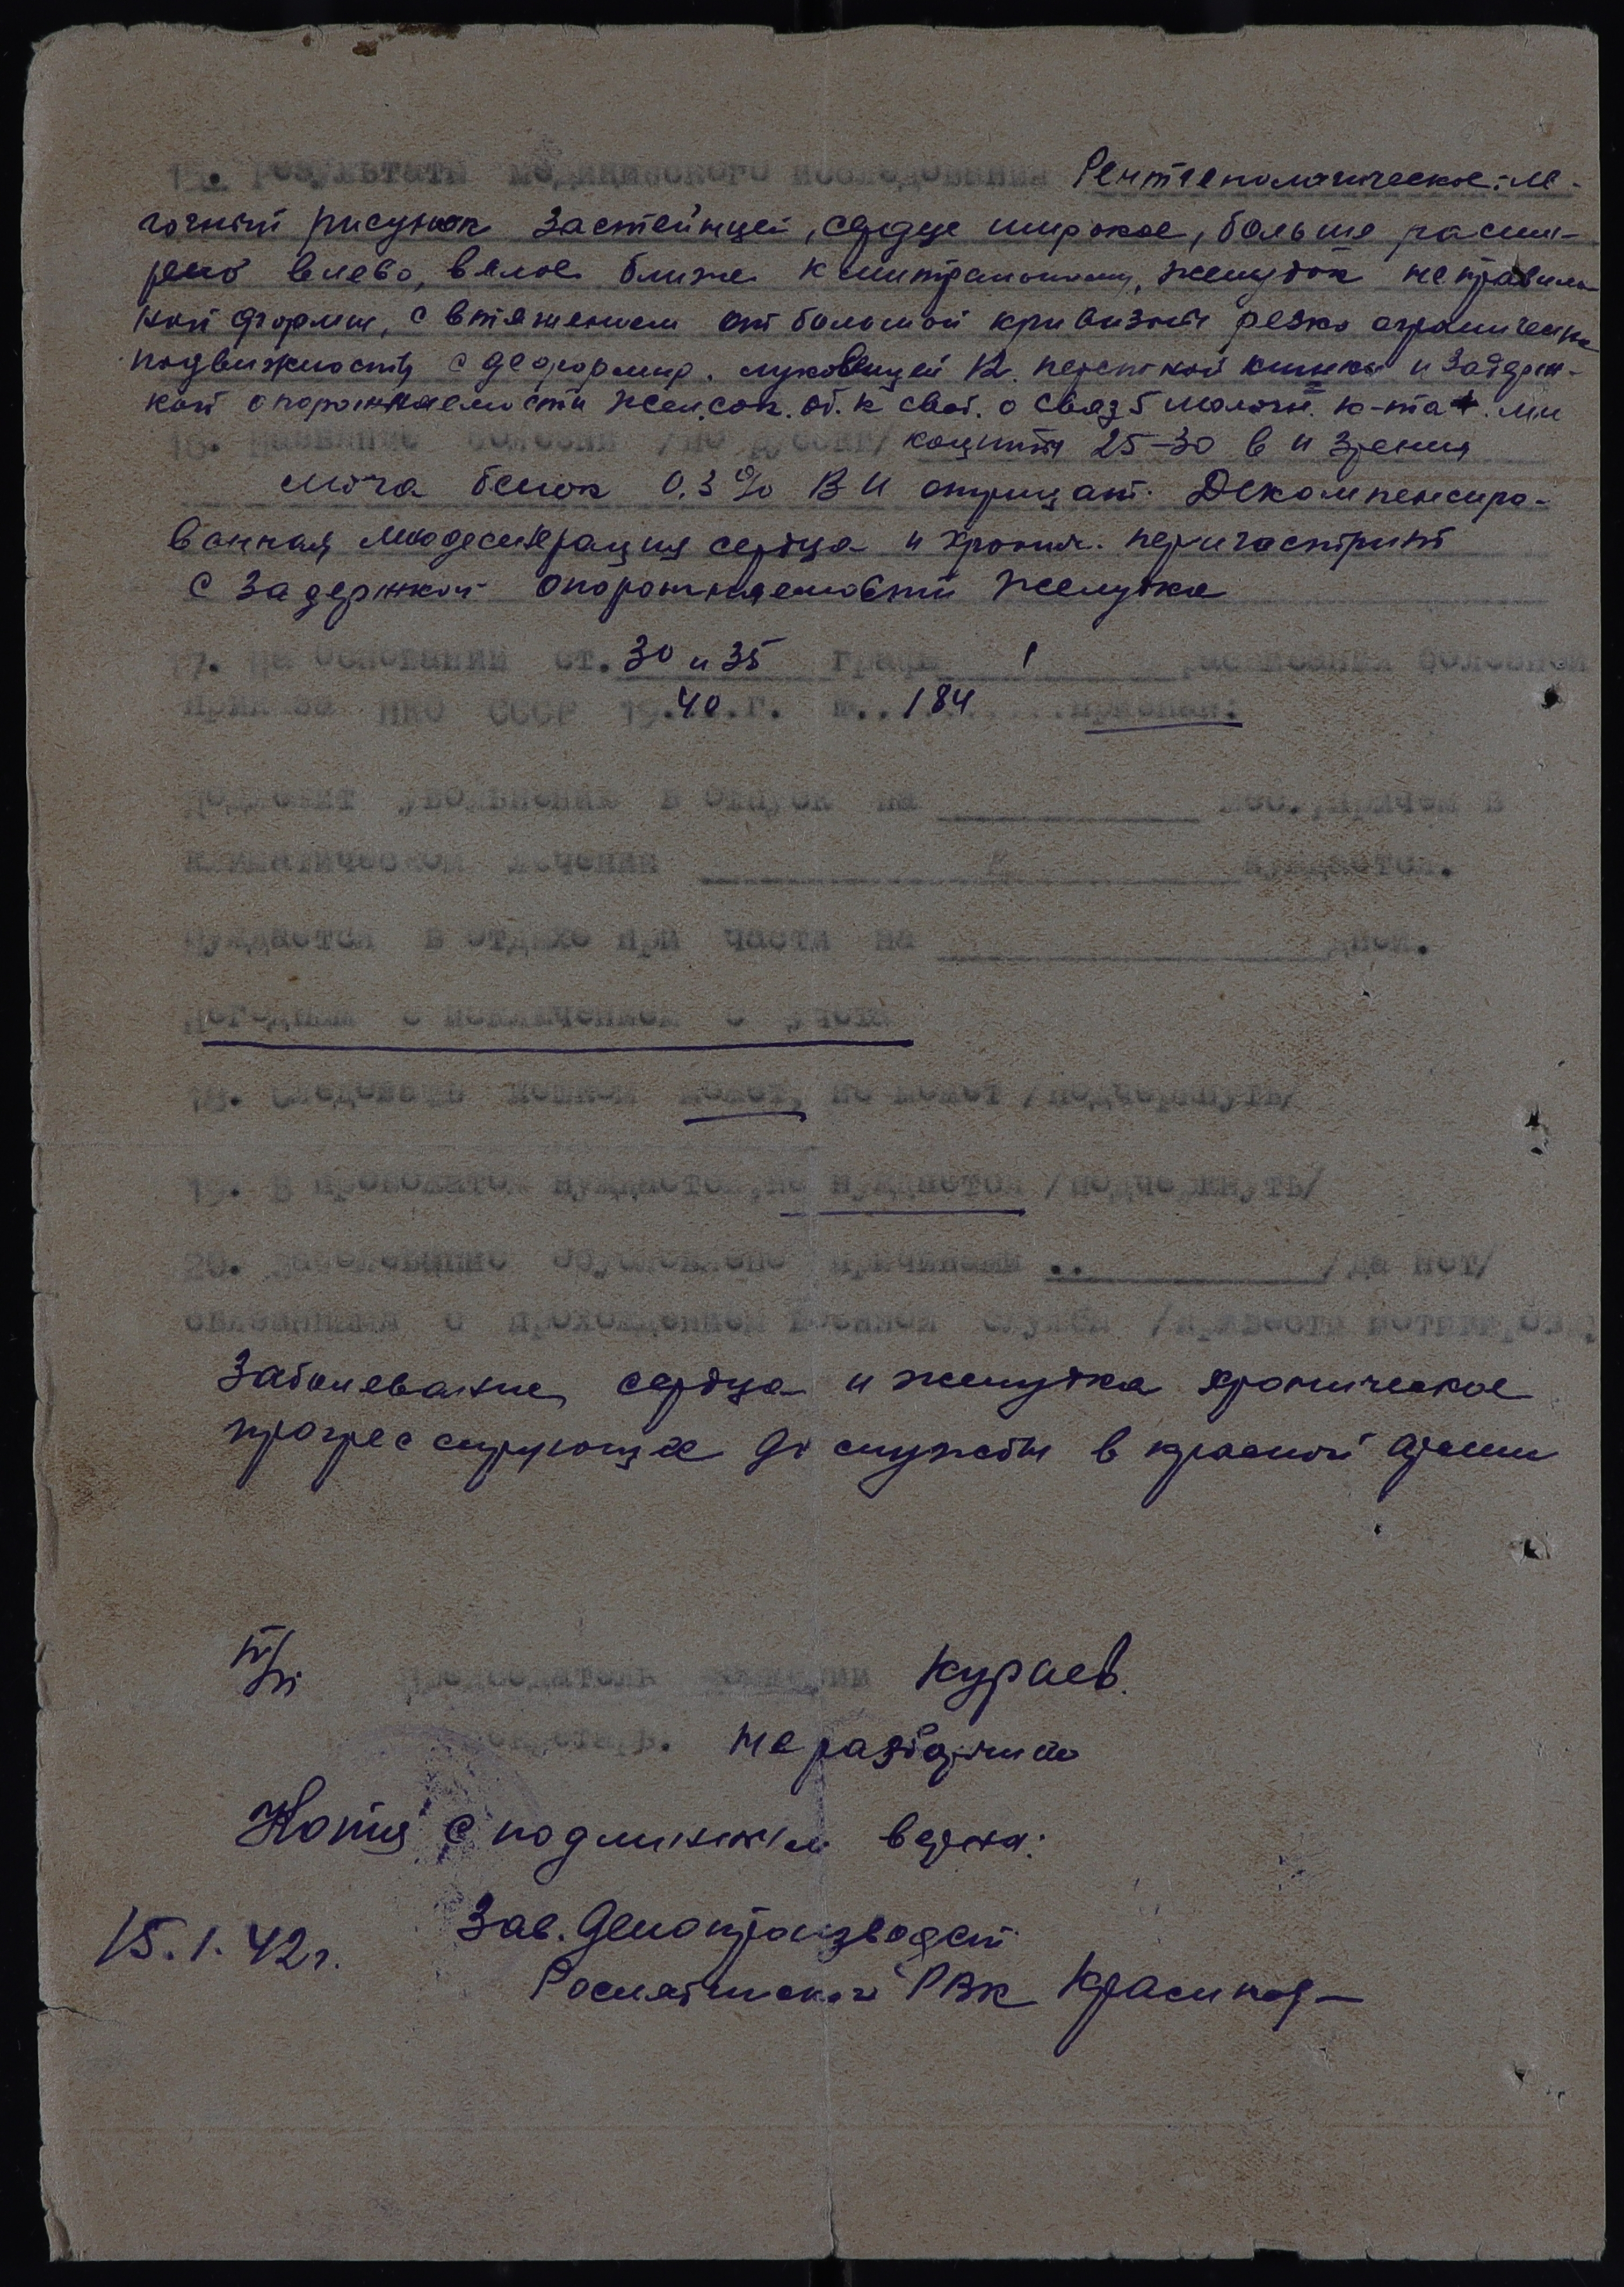 15. Результаты медицинского исследования Рентгенологическое: ле-
гочный рисунок застойный, сердце широкое, больше расши-
рено влево, вялое ближе к митральному, желудок неправиль
ной формы, с втяжением от большой кривизны резко ограничена
подвижность с деформир. луковицей 12 перстной кишки и задерж-
кой опорожняемости жел. сок. об. к своб. о связ 5 молочн. к-та +. ли
16. Название болезни /по русски/ коциты 25-30 в п зрения
моча белок 0,3% ВК отрицат. Декомпенсиро-
ванная миодегенерация сердца и хронич. перигастрит
с задержкой опорожняемости желудка
17. На основании ст. 30 и 35 графы 1 расписания болезней
приказа НКО СССР 19.40.г. №..184......признан:
Подлежит увольнению в отпуск на мес., причем в
климатическом лечении нуждается.
Нуждается в отдыхе при части на дней.
Негодным с исключением с учета
18. Следовать пешком может, не может /подчеркнуть/
19. В провожатом нуждается, не нуждается /подчеркнуть/
20. Заболевание обусловлено причинами .. /да нет/
связанными с прохождением военной службы /привести
Заболевание сердца и желудка хроническое
прогрессирующее до службы в красной армии
п/п Председатель комиссии Кураев.
Секретарь. неразборчиво
Копия с подлинным верна:
15.1.42г. Зав. делопроизводст
РВК